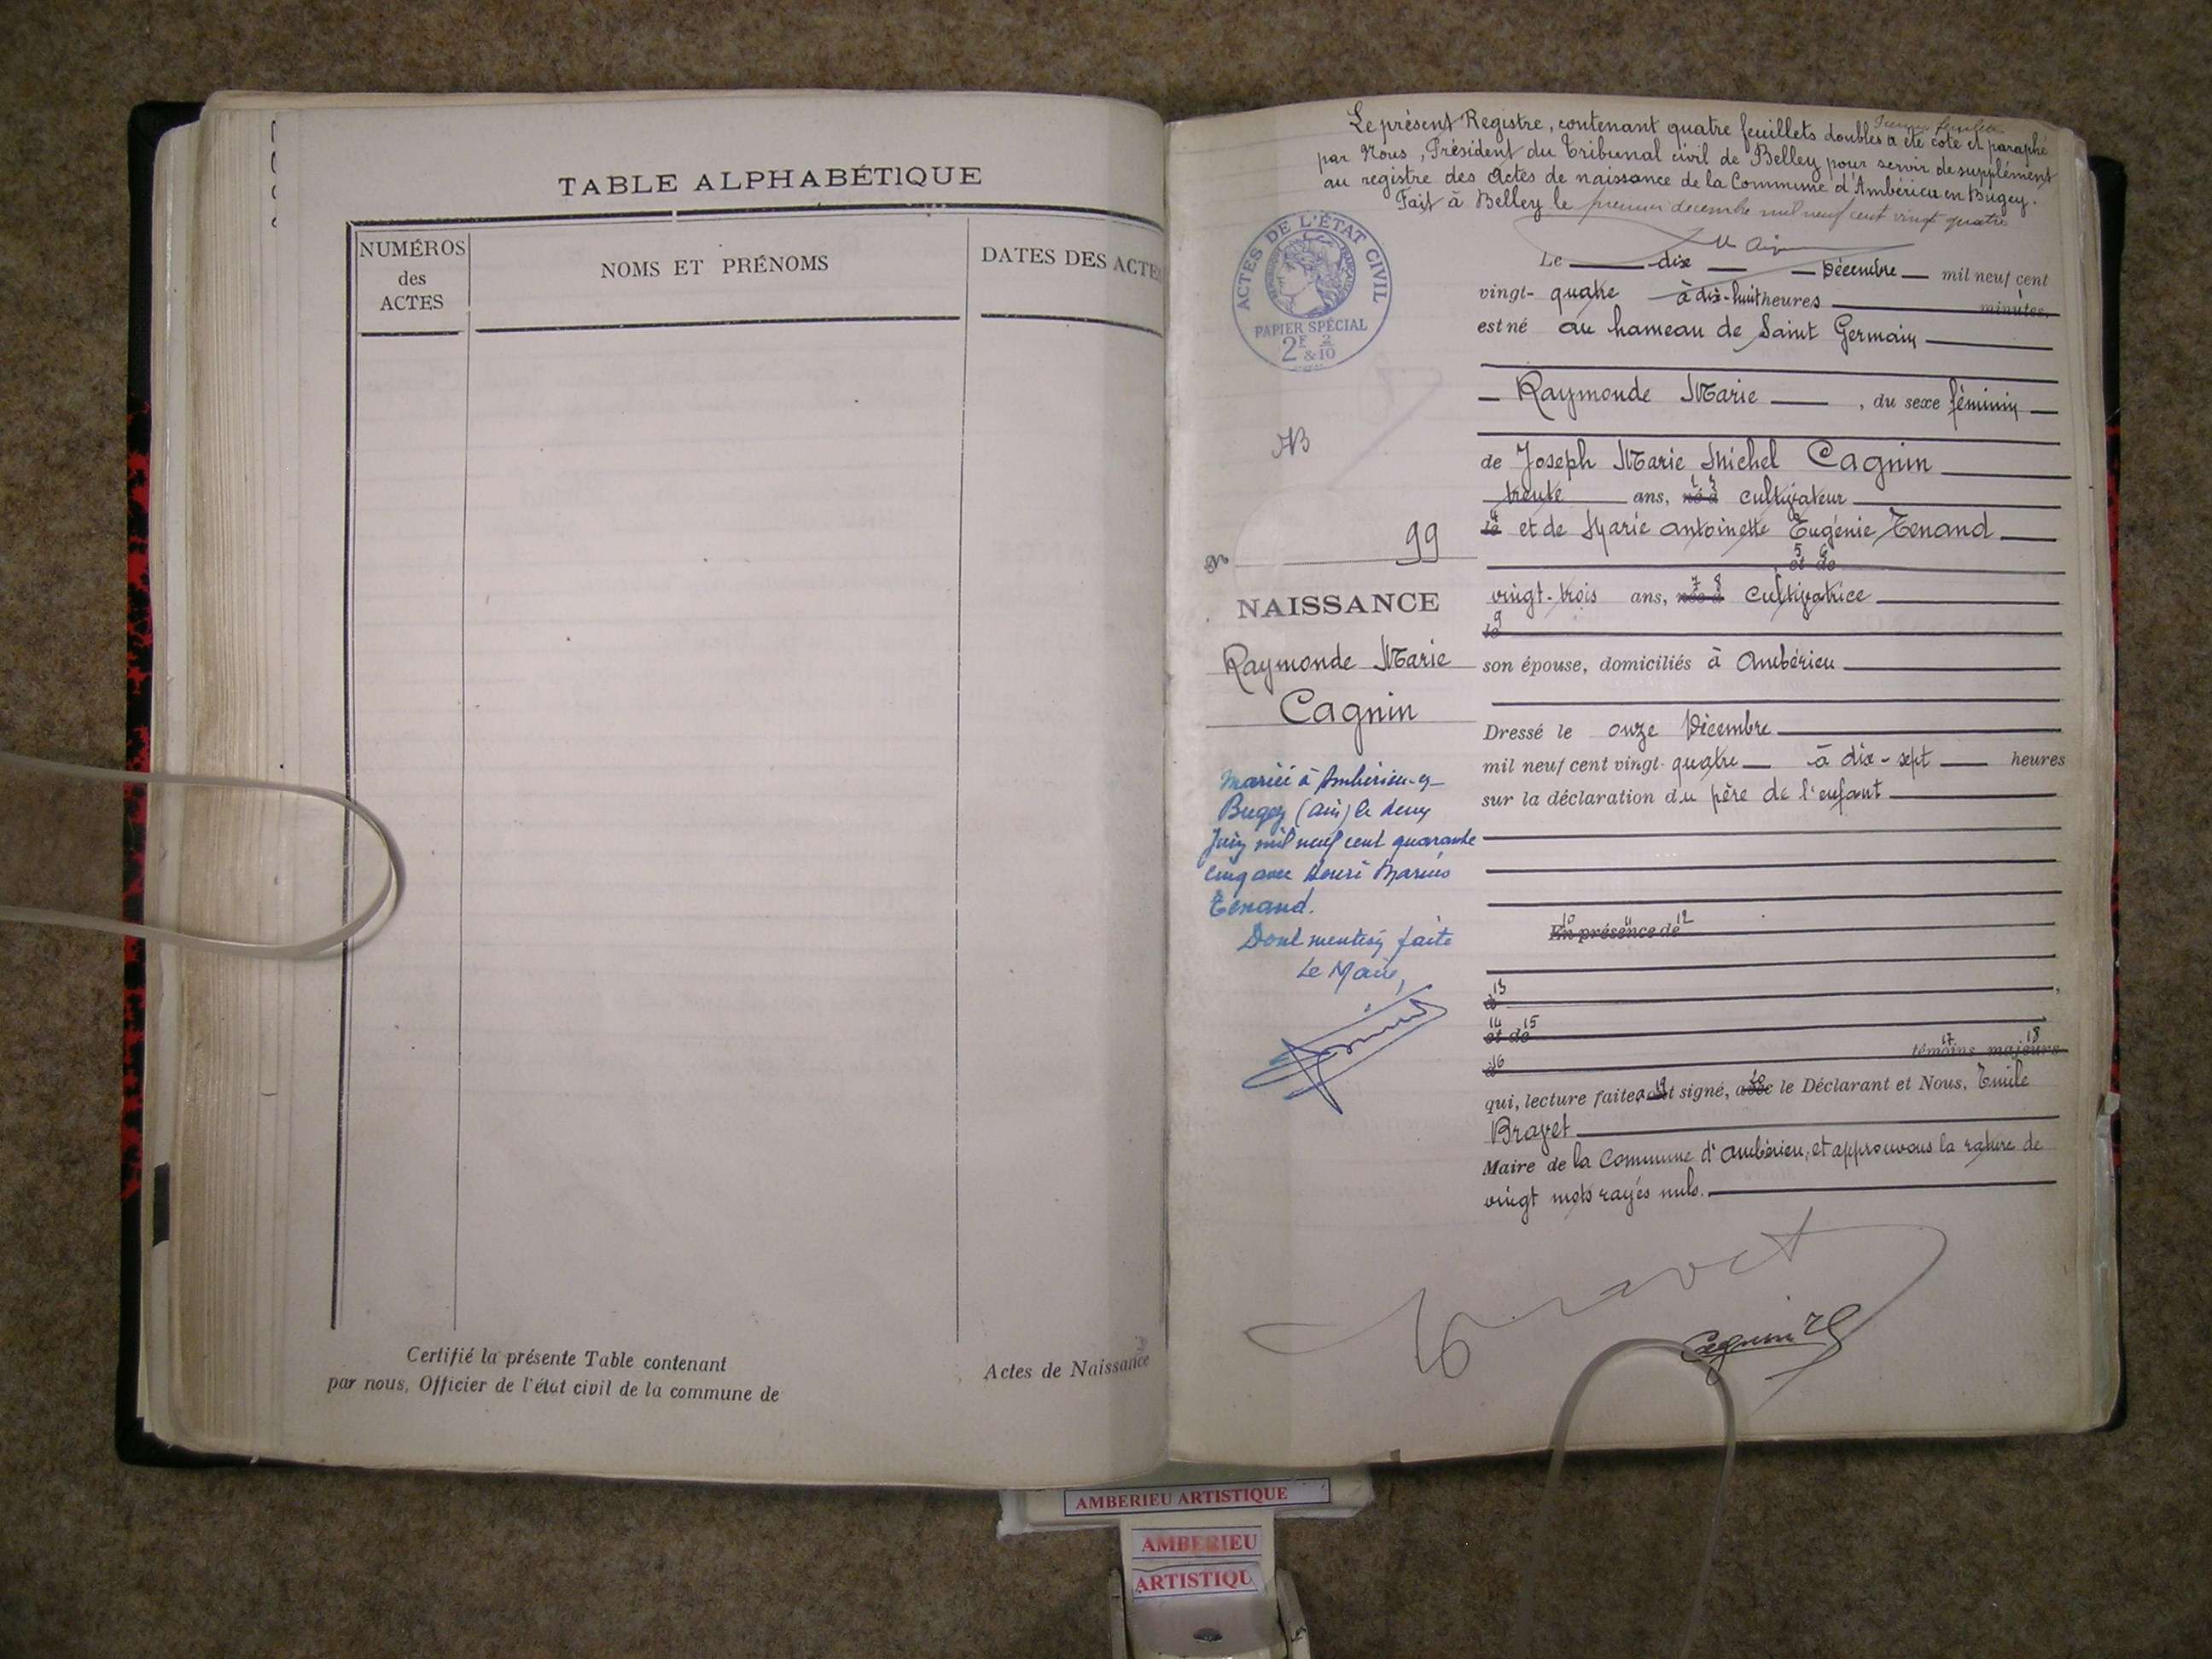 TABLE ALPHABÉTIQUE
NUMÉROS
des
ACTES
NOMS ET PRÉNOMS
DATES DES ACTE
Certifié la présente Table contenant
par nous, Officier de l'état civil de la commune de
Actes de Naissance
Le présent Registre, contenant quatre feuillets doubles a été coté et paraphé
par Nous, Président du Tribunal civil de Belley pour servir de supplément
au registre des actes de naissance de la Commune d'Ambérieu en Bugey.
Fait à Belley le premier decembre mil neuf cent vingt quatre
ACTES DE L'ÉTAT CIVIL
PAPIER SPÉCIAL
2F 2
& 10
Le dix Décembre mil neuf cent
vingt- quatre à dix-huit heures minutes,
est né au hameau de Saint Germain
Raymonde Marie , du sexe féminin
de Joseph Marie Michel Cagnin
trente ans, né à cultivateur
le et de Marie antoinette Eugénie Tenand
et de
vingt-trois ans, née à cultivatrice
le
son épouse, domiciliés à Ambérieu
Dressé le onze Décembre
mil neuf cent vingt- quatre à dix-sept heures
sur la déclaration du père de l'enfant
En présence de
à
et de
à
témoins majeurs
qui, lecture faite, ont signé, avec le Déclarant et Nous, Emile
Bravet
Maire de la Commune d'Ambérieu, et approuvons la rature de
vingt mots rayés nuls.
Bravet
Cagnin
N° 99
NAISSANCE
Raymonde Marie
Cagnin
Mariée à Ambérieu-en-
Bugey (Ain) le deux
Juin mil neuf cent quarante
cinq avec Henri Marius
Tenand.
Dont mention faite
Le Maire,
AMBERIEU ARTISTIQUE
AMBERIEU
ARTISTIQU